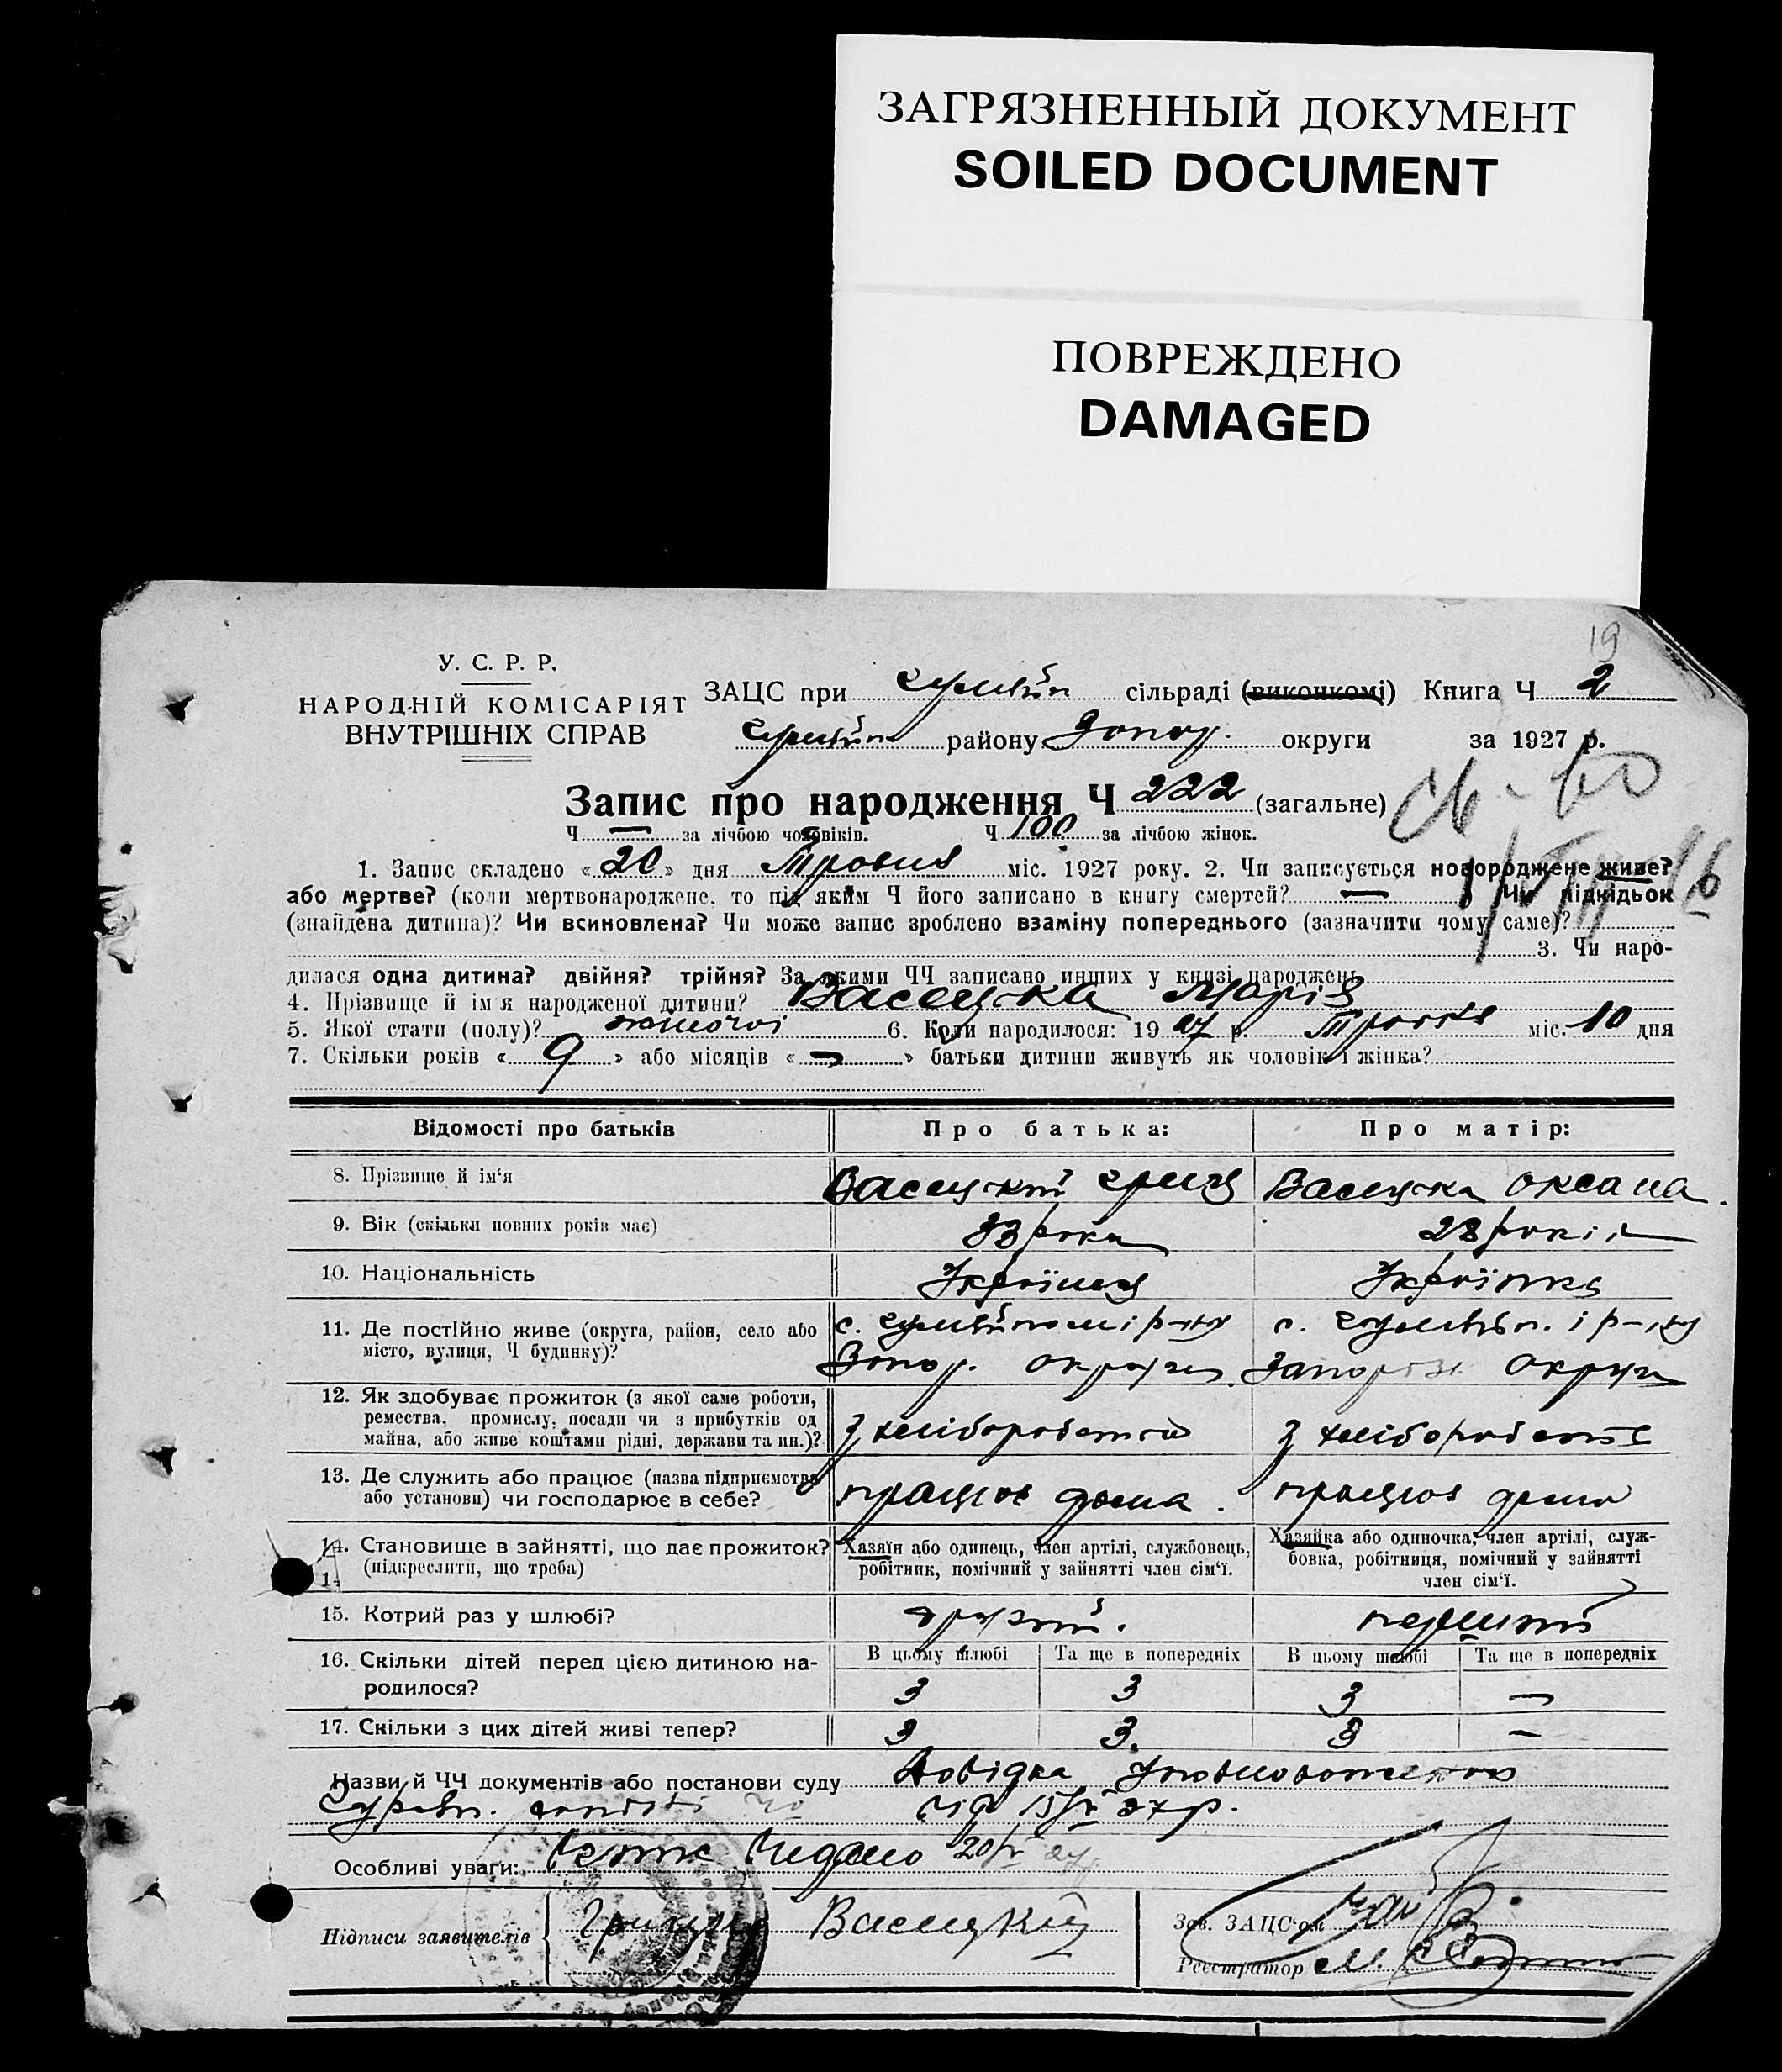 ЗАГРЯЗНЕННЫЙ ДОКУМЕНТ
SOILED DOCUMENT
ПОВРЕЖДЕНО
DAMAGED
19
У. С. Р. Р.
НАРОДНІЙ КОМІСАРІЯТ
ВНУТРІШНІХ СПРАВ
ЗАЦС при сільраді (виконкомі) Книга Ч 2
району Запор. округи за 1927 р.
Запис про народження Ч 222 (загальне)
Ч — за лічбою чоловіків. Ч 100 за лічбою жінок.
1. Запис складено «20» дня Травня міс. 1927 року. 2. Чи записується новороджене живе?
або мертве? (коли мертвонароджене, то під яким Ч його записано в книгу смертей? — ) Чи підкідьок
(знайдена дитина)? Чи всиновлена? Чи може запис зроблено взаміну попереднього (зазначити чому саме)?
3. Чи наро-
дилася одна дитина? двійня? трійня? За якими ЧЧ записано инших у книзі народжень
4. Прізвище й ім'я народженої дитини? Васецька Марія
5. Якої стати (полу)? жіночої 6. Коли народилося: 1927 р. Травня міс. 10 дня
7. Скільки років «9» або місяців «—» батьки дитини живуть як чоловік і жінка?
Відомості про батьків Про батька: Про матір:
8. Прізвище й ім‘я Васецький Гриць Васецька Оксана
9. Вік (скільки повних років має) 33 роки 28 років
10. Національність Українець Українка
11. Де постійно живе (округа, район, село або
місто, вулиця, Ч будинку)?
с. і р-ну с. і р-ну
Запор. округи Запорізь округи
12. Як здобуває прожиток (з якої саме роботи,
ремества, промислу, посади чи з прибутків од
майна, або живе коштами рідні, держави та ин.)?
з хліборобства з хліборобства
13. Де служить або працює (назва підприємства
або установи) чи господарює в себе?
працює дома. працює дома
14. Становище в зайнятті, що дає прожиток?
(підкреслити, що треба)
Хазяїн або одинець, член артілі, службовець,
робітник, помічний у зайнятті член сім‘ї.
Хазяйка або одиночка, член артілі, служ-
бовка, робітниця, помічний у зайнятті
член сім‘ї.
15. Котрий раз у шлюбі? другий. перший
16. Скільки дітей перед цією дитиною на-
родилося?
В цьому шлюбі Та ще в попередніх В цьому шлюбі Та ще в попередніх
3 3 3 —
17. Скільки з цих дітей живі тепер? 3 3. 3 —
Назви й ЧЧ документів або постанови суду Довідка Уповноваженого
від 15/V 27 р.
Особливі уваги: Видано 20/V 27
Підписи заявителів Григорій Васецький
Зав. ЗАЦС‘ом
Реєстратор М.